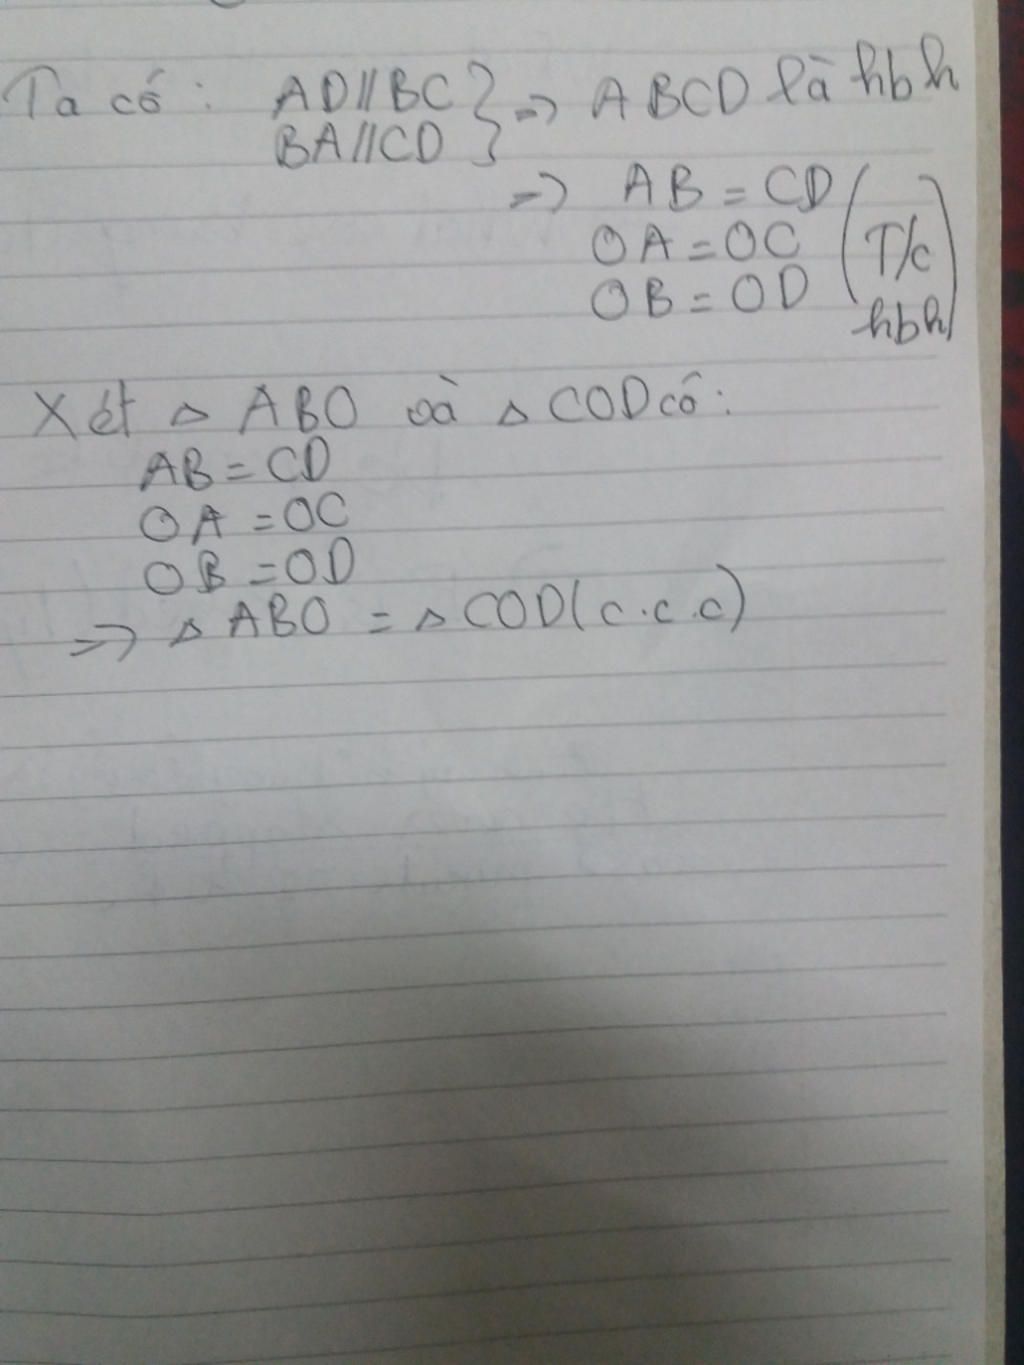 Ta có : AD//BC } => ABCD là hbh
BA//CD
=> AB = CD
OA = OC (T/c
OB = OD hbh)
Xét △ ABO và △ COD có:
AB = CD
OA = OC
OB = OD
=> △ ABO = △ COD (c.c.c)